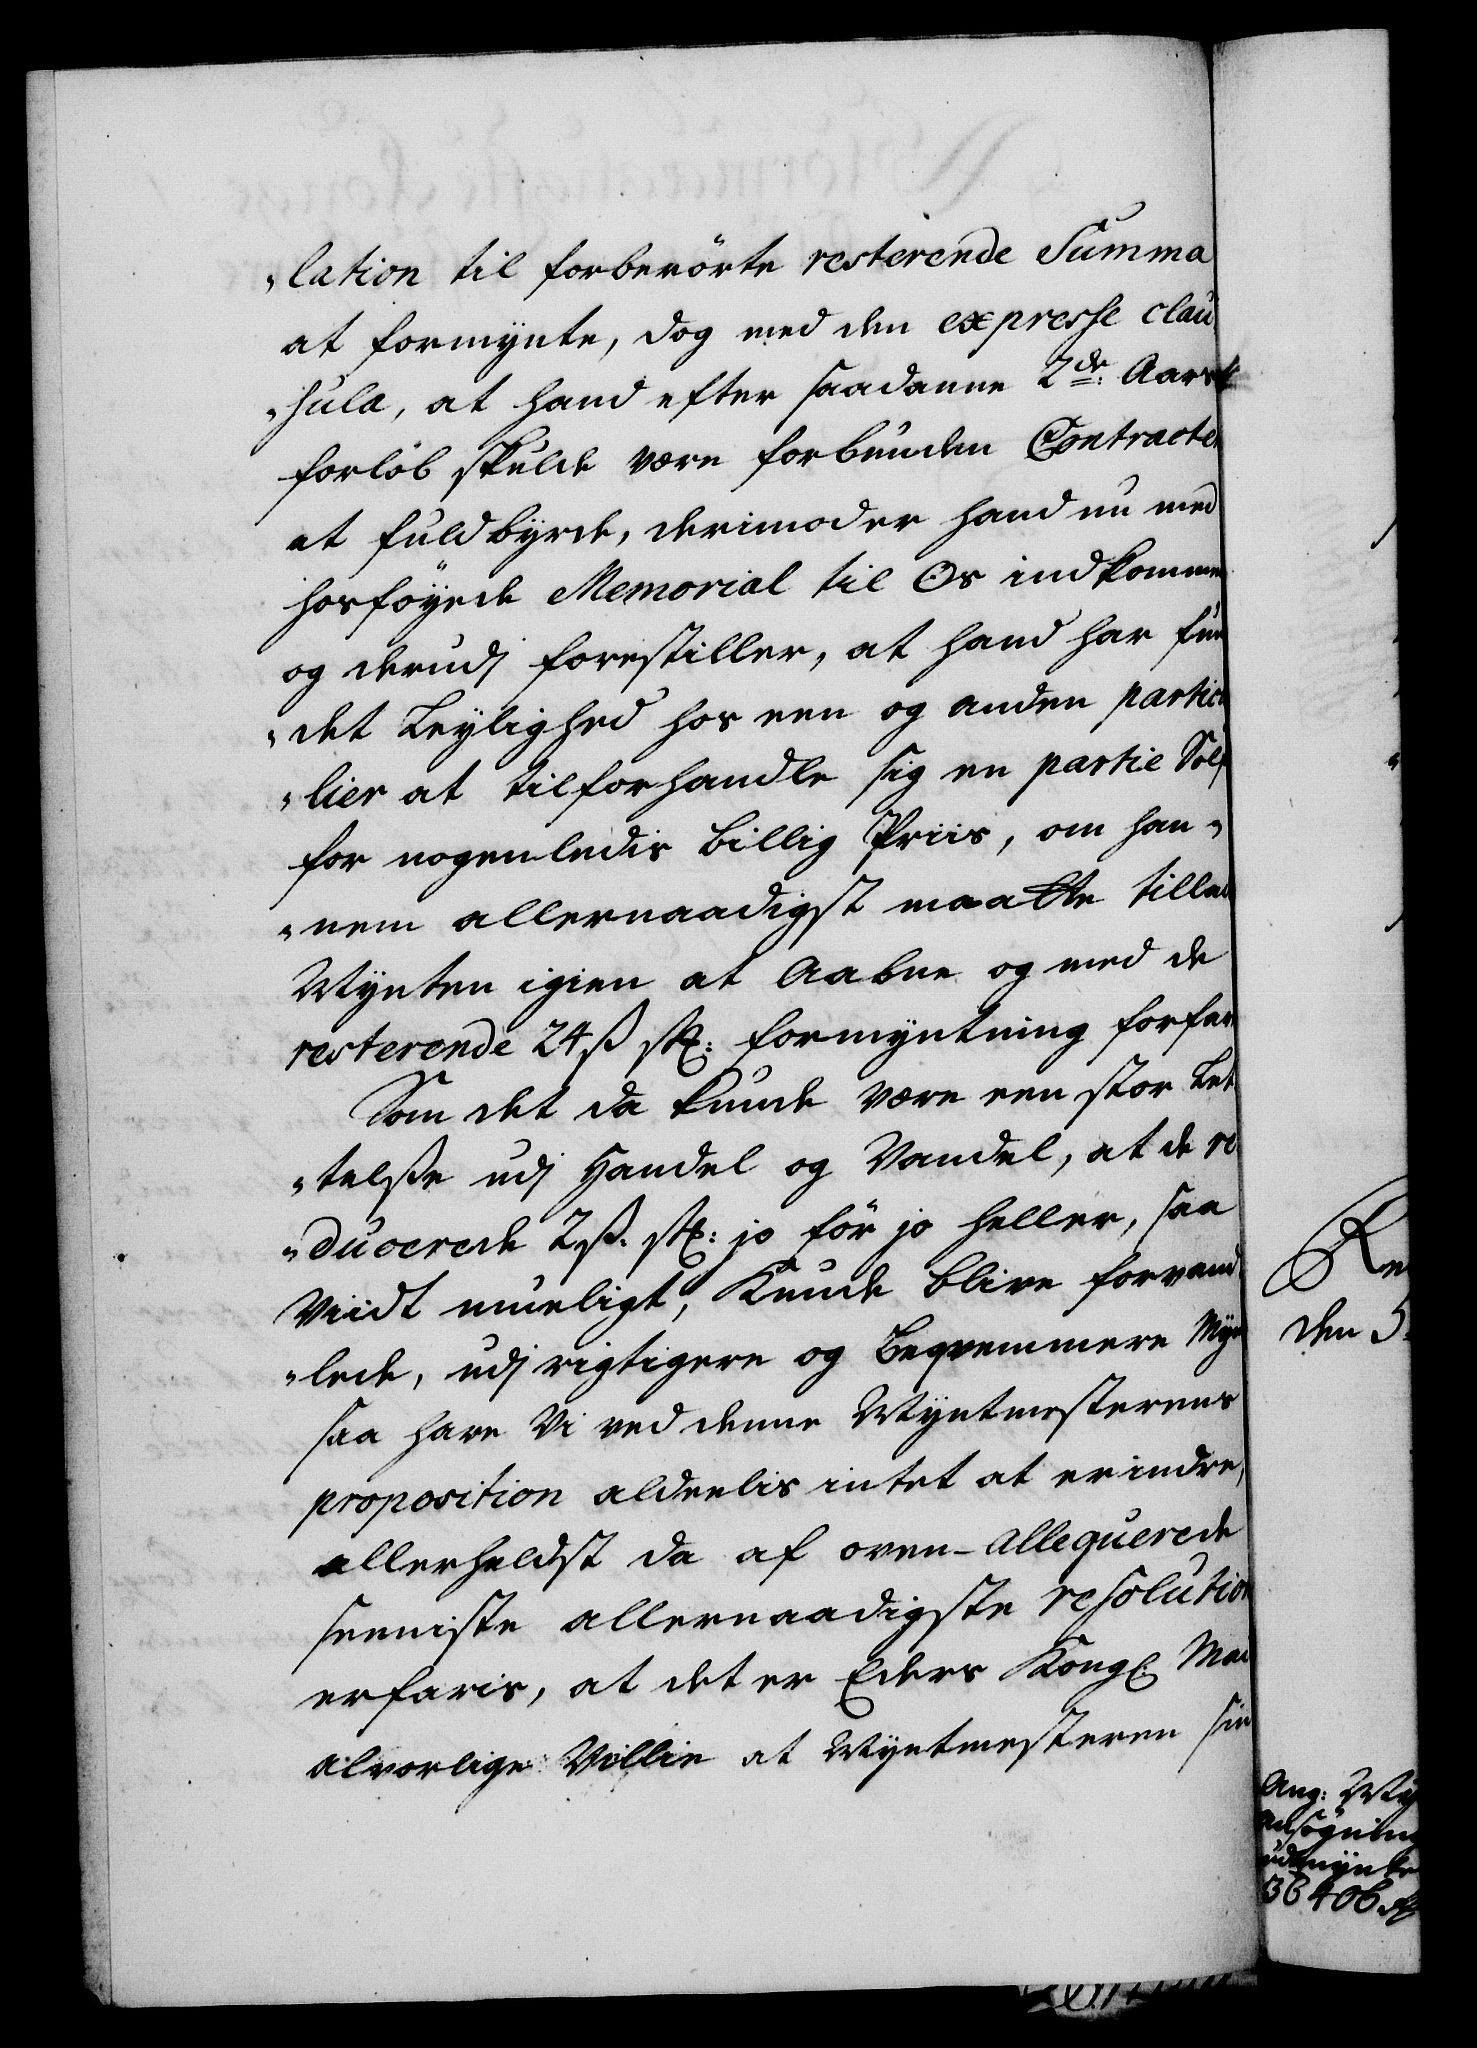 "lation til forberörte resterende Summa
at formynte, dog med den expresse clau
"sula, at hand efter saadanne 2de: Aars
forlöb skulde være forbunden Contracten
at fuldbyrde, derimod er hand nu med
hosföyede Memorial til Os indkommen
og derudj forestiller, at hand har fun
"det Leylighed hos een og anden particu
"lier at tilforhandle sig en partie Sölf
for nogenledis billig Priis, om han"
"nem allernaadigst maatte tillades
Mynten igien at aabne og med de
resterende 24 ß st: formyntning forfare
Som det da kunde være een stor Let
"telße udj Handel og Vandel, at de re
"ducerede 2 ß. st: jo för jo heller, saa
Viidt mueligt, kunde blive forvand
"lede, udj rigtigere og beqvemmere Mynt
saa have Vi ved denne Myntmesterens
proposition aldeelis intet at erindre,
allerheldst da af oven-allequerede
seeniste allernaadigste resolution
erfaris, at det er Eders Kongl. Mai
alvorlige Villie at Myntmesteren sin
Re
den 5.
Ang: My
ansögning
udmynte